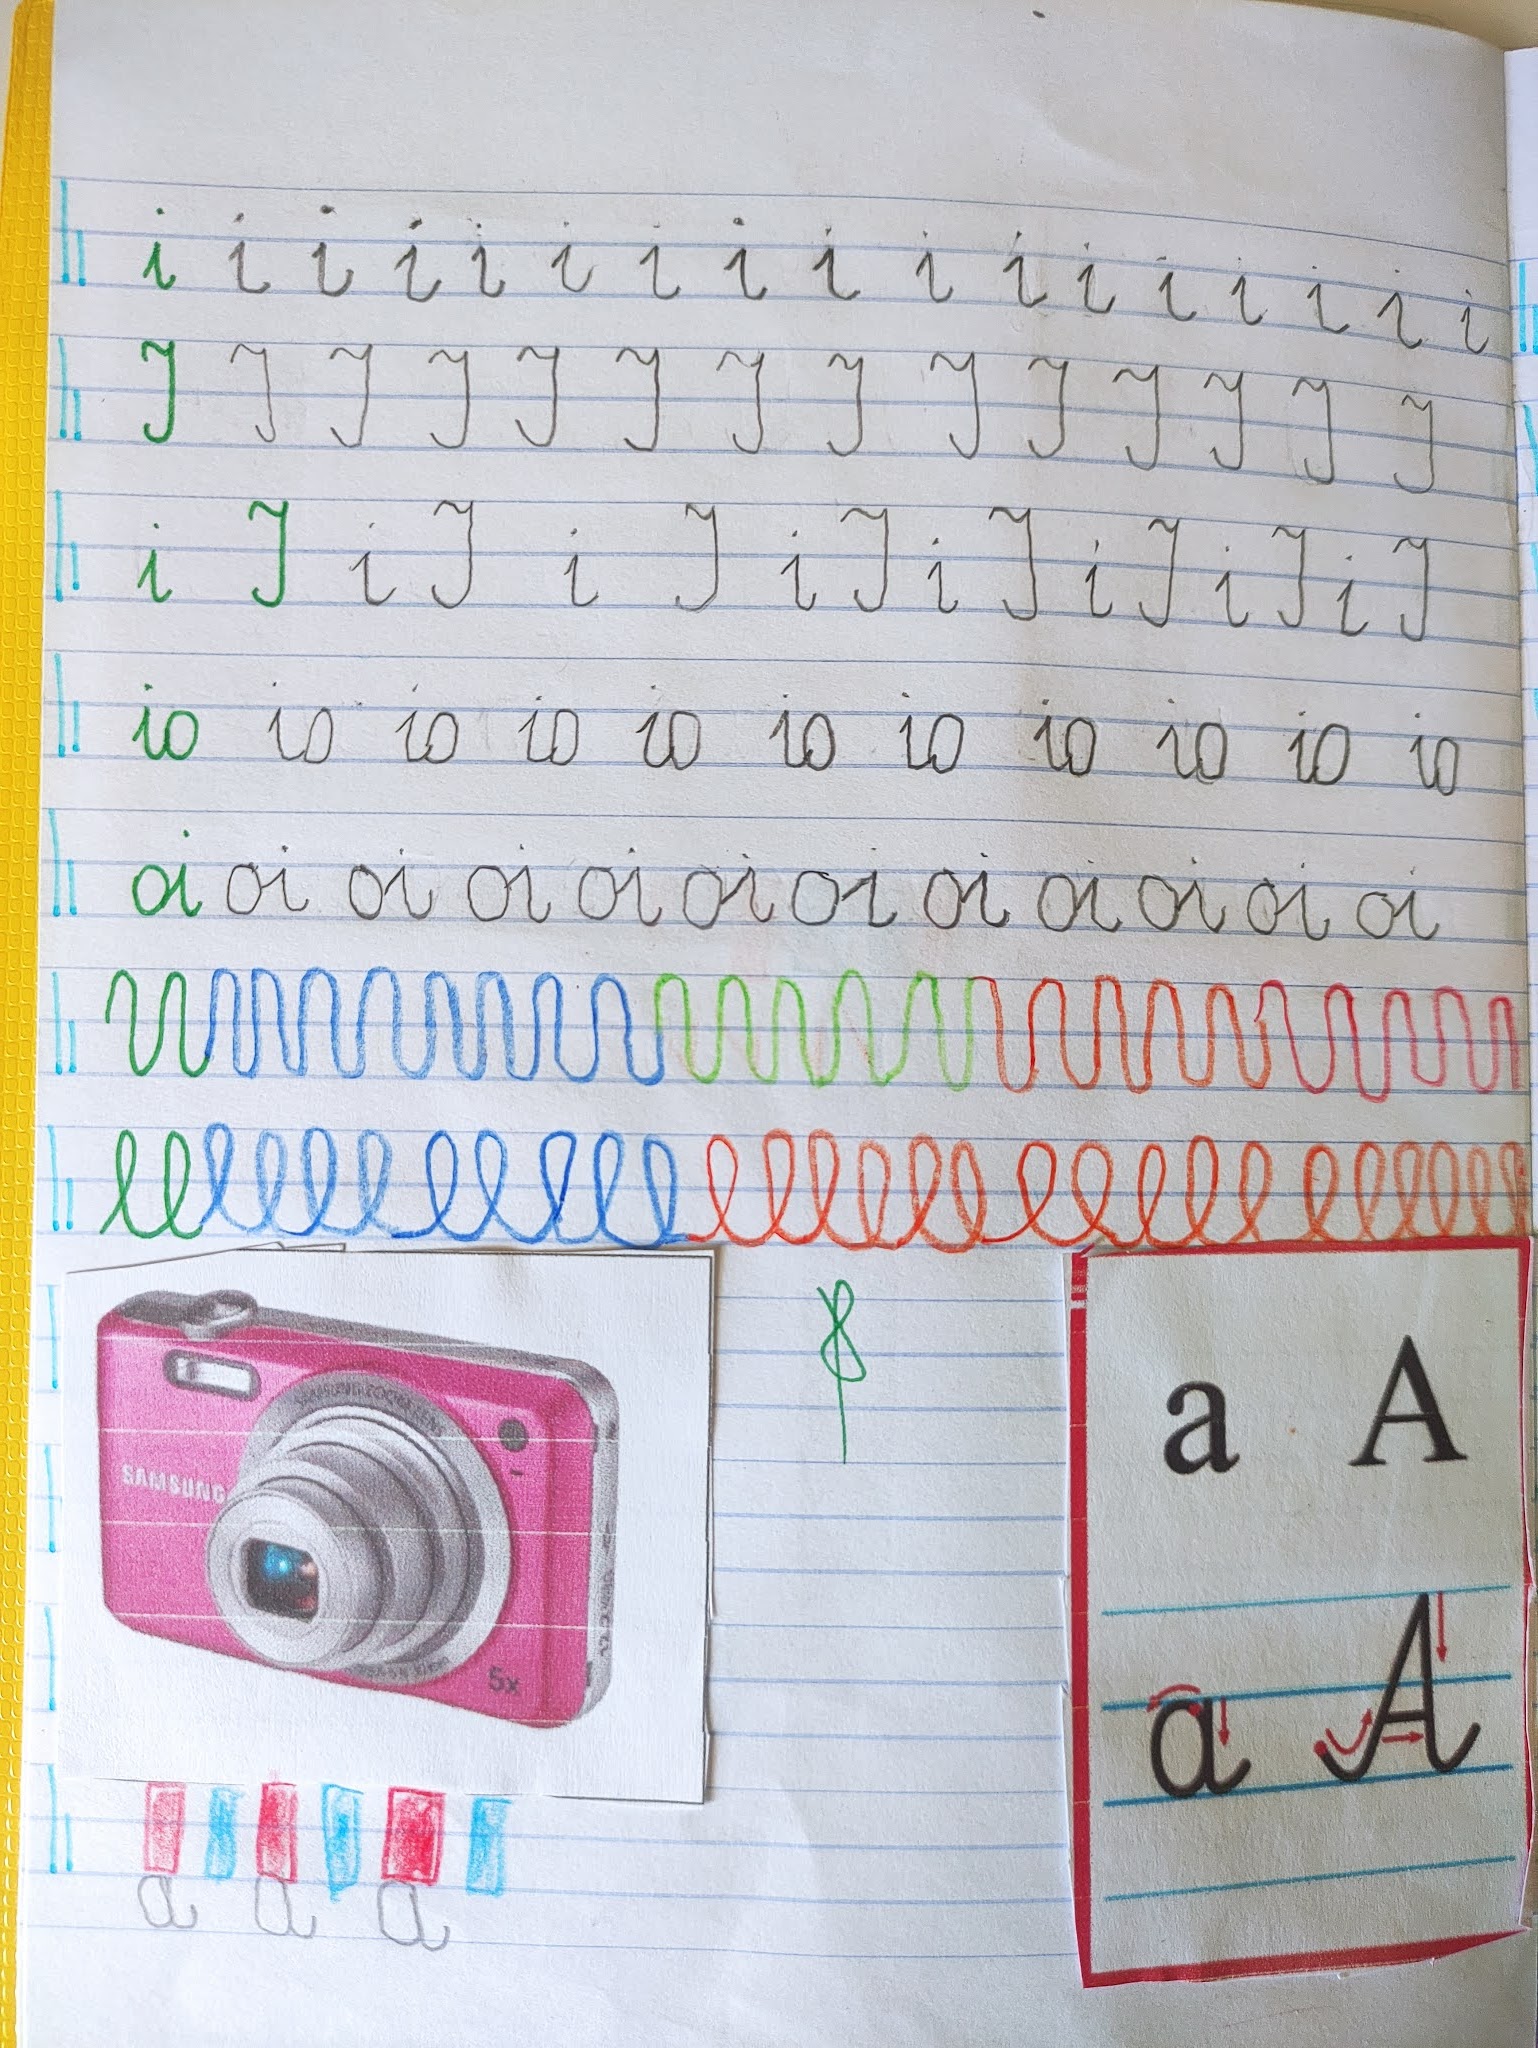 i i i i i i i i i i i i i i i i i
I I I I I I I I I I I I I I
i I i I i I i I i I i I i I i I
io io io io io io io io io io io
oi oi oi oi oi oi oi oi oi oi oi oi
SAMSUNG
5x
a A
a A
a a a